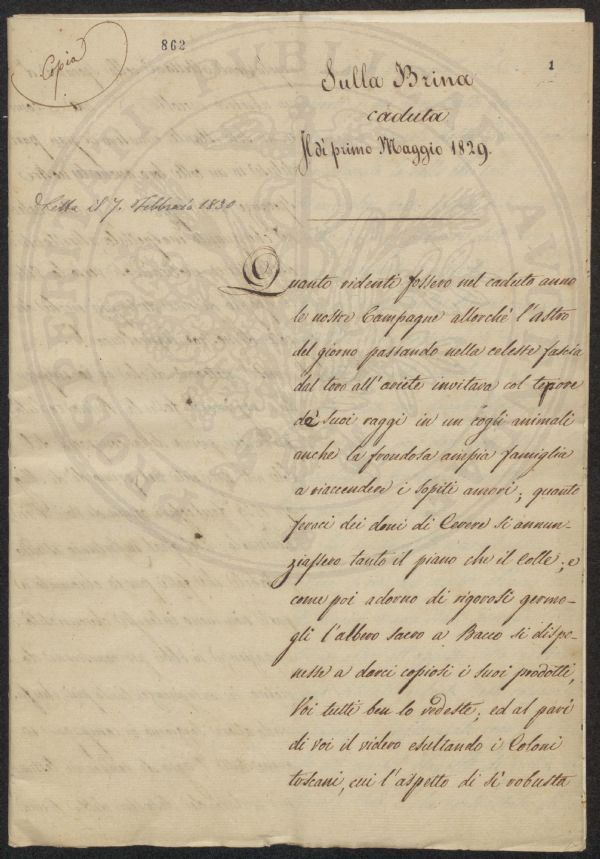 Copia
862
1
Sulla Brina
caduta
Il dì primo Maggio 1829.
Letta il 7. Febbraio 1830
Quanto ridenti fossero nel caduto anno
le nostre Campagne allorchè l'astro
del giorno passando nella celeste fascia
dal toro all'ariete invitava col tepore
de' suoi raggi in un cogli animali
anche la frondosa ampia famiglia
a riaccendere i sopiti amori; quanto
feraci dei doni di Cerere si annun-
ziassero tanto il piano che il Colle; e
come poi adorno di rigorosi germo-
gli l'albero sacro a Bacco si dispo-
nesse a darci copiosi i suoi prodotti,
Voi tutti ben lo vedeste; ed al pari
di voi il videro esultando i Coloni
toscani, cui l'aspetto di sì robusta